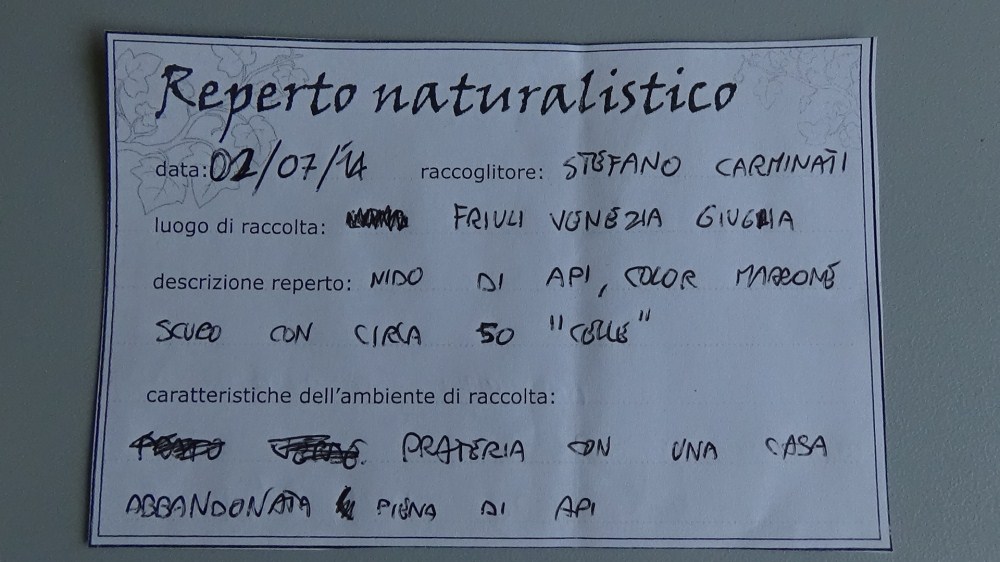 Reperto naturalistico
data: 02/07/14 raccoglitore: STEFANO CARMINATI
luogo di raccolta: FRIULI VENEZIA GIUGLIA
descrizione reperto: NIDO DI API, COLOR MARRONE
SCURO CON CIRCA 50 "CELLE"
caratteristiche dell'ambiente di raccolta:
PRATERIA CON UNA CASA
ABBANDONATA PIENA DI API